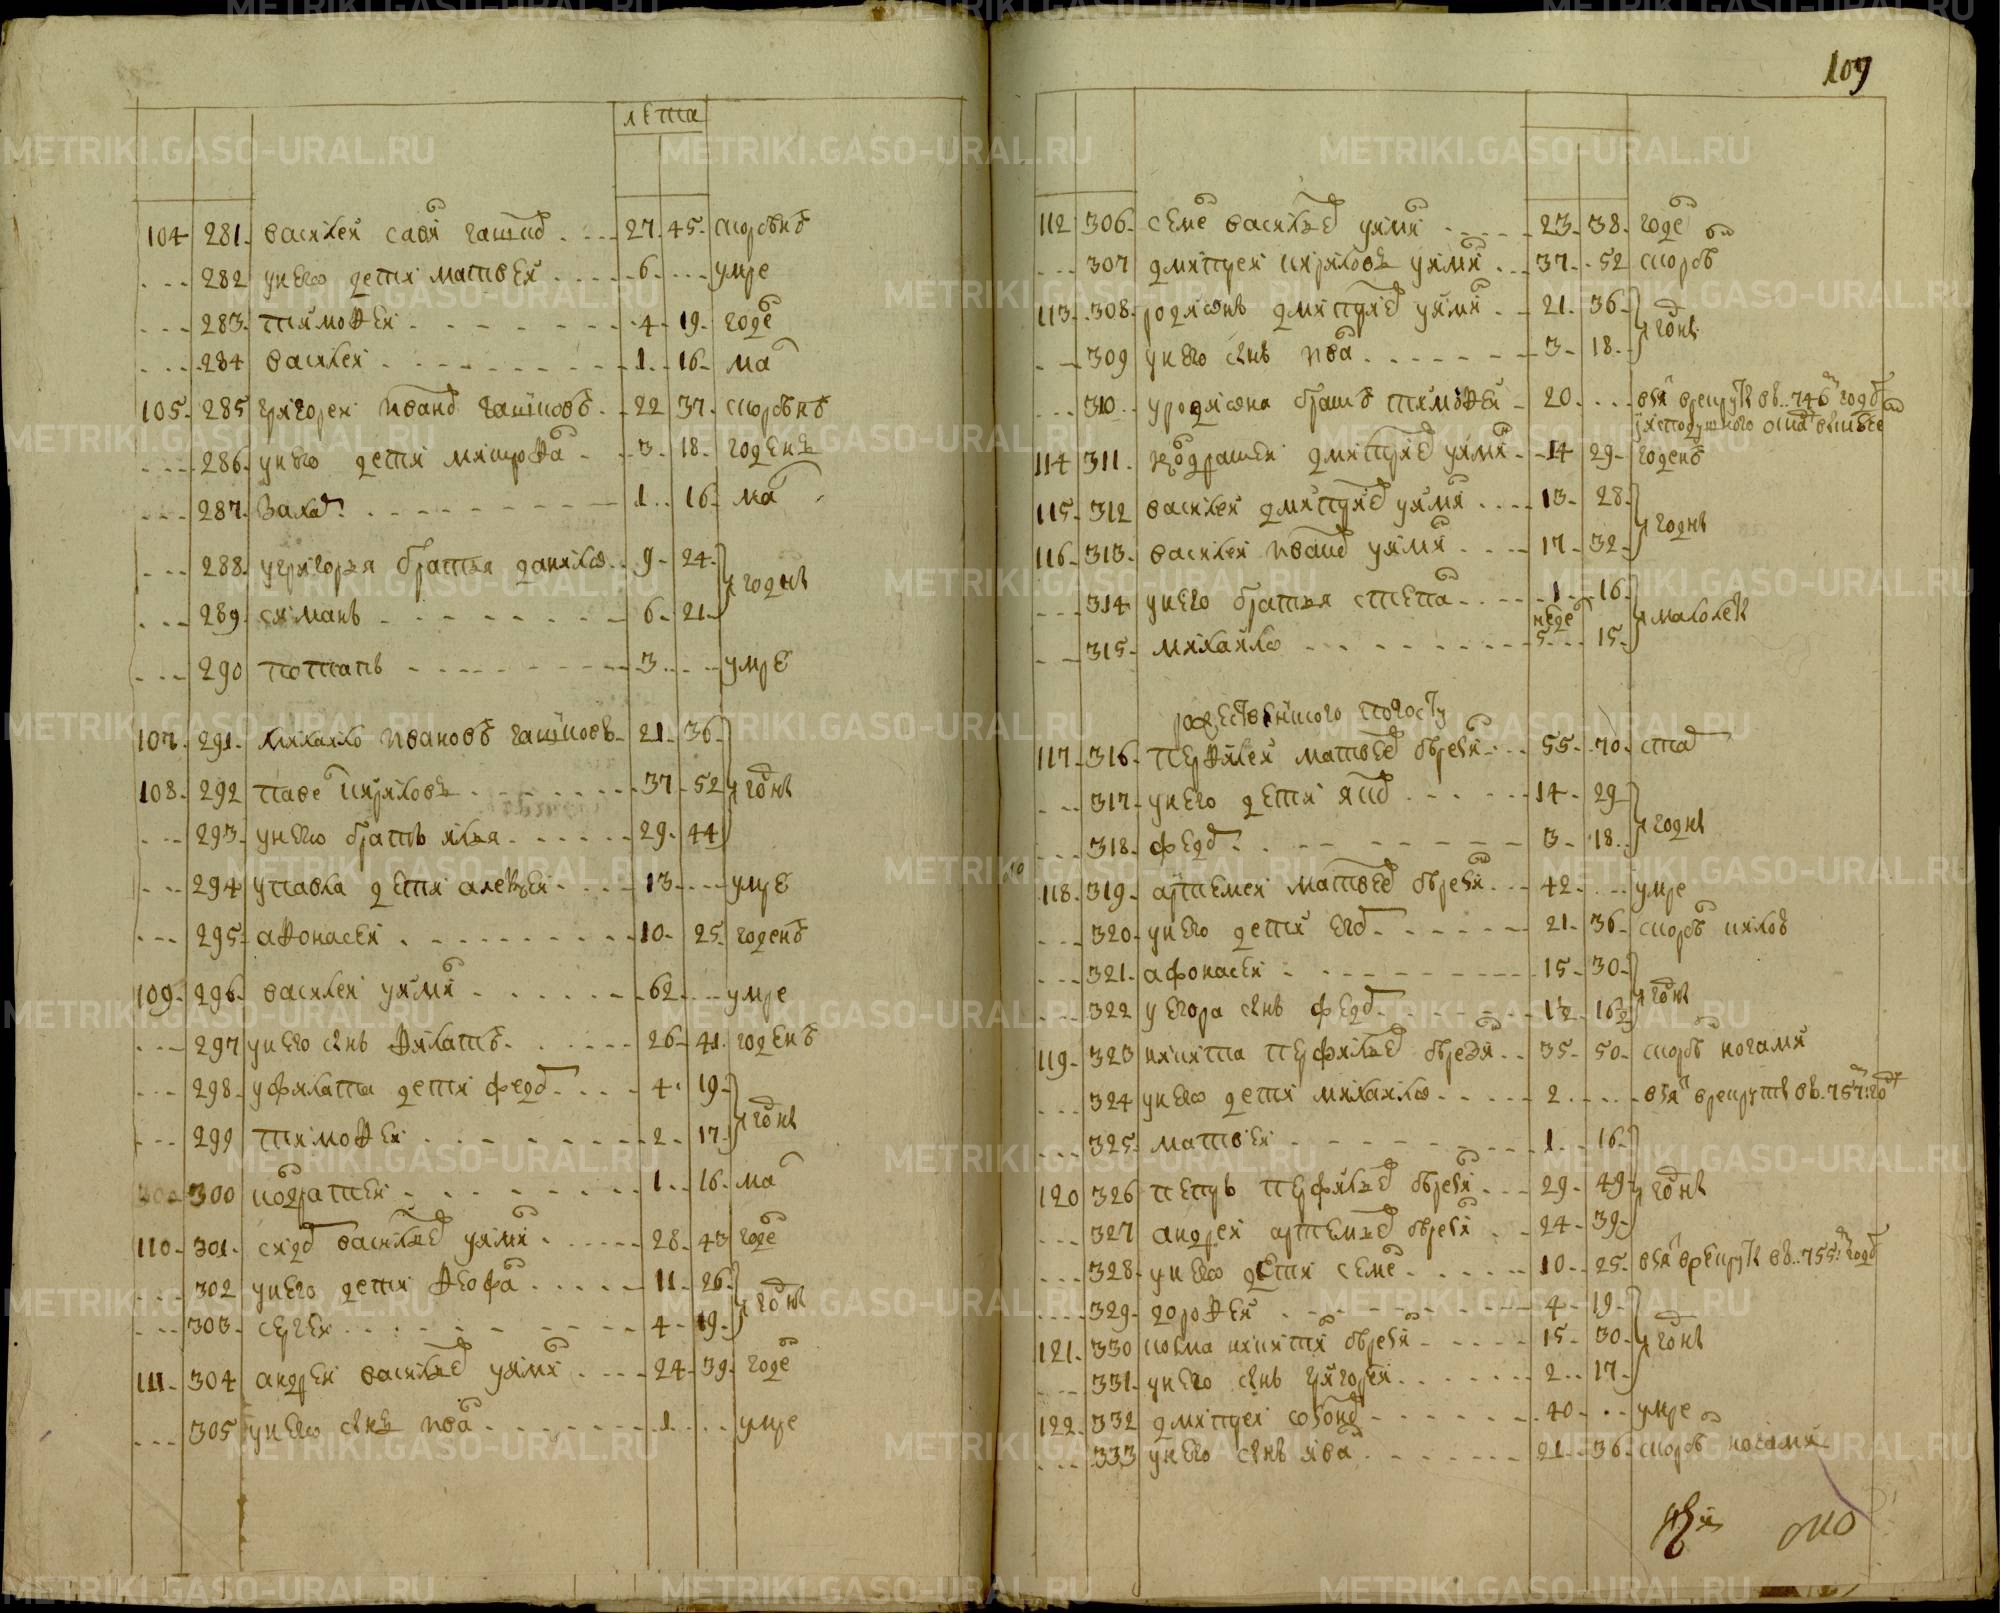 109
лета
104 281 василеи сави гашков 27 45 скорбнъ
282 у него дети матвеи 6 умре
283 тимофеи 4 19 годе
284 василеи 1 16 ма
105 285 григореи иванов гашковъ 22 37 скорбнъ
286 у него дети митрофа 3 18 годенъ
287 заха 1 16 ма
288 у григорья братья данило 9 24 годны
289 симанъ 6 21
290 потапъ 3 умре
107 291 михаило ивановъ гашковъ 21 36
108 292 паве кириловъ 37 52 годны
293 у него братъ илья 29 44
294 у павла дети алексеи 13 умре
295 афонасеи 10 25 годенъ
109 296 василеи уими 62 умре
297 у него сынъ филатъ 26 41 годенъ
298 у филата дети федо 4 19 годны
299 тимофеи 2 17
300 кодратеи 1 16 ма
110 301 сидо василье уими 28 43 годе
302 у него дети феофа 11 26 годны
303 сергеи 4 19
111 304 андреи василье уими 24 39 годе
305 у него сынъ ива 1 умре
112 306 семе василье уими 23 38 годе
307 дмитреи кириловъ уими 37 52 скорбъ
113 308 родионъ дмитрие уими 21 36 годны
309 у него сынъ ива 3 18
310 у родиона братъ тимофеи 20 взя в рекруты въ 746 году
114 311 кодратеи дмитрие уими 14 29 годенъ
115 312 василеи дмитрие уими 13 28 годны
116 313 василеи ивано уими 17 32
314 у него братья степа 1 16 малолеты
неде
315 михаило 5 15
рожественского погосту
117 316 перфилеи матвее обрезк 55 70 ста
317 у него дети яко 14 29 годны
318 федо 3 18
118 319 артемеи матвее обрезк 42 умре
320 у него дети его 21 36 скорбе киловъ
321 афонасеи 15 30 годны
322 у егора сынъ федо 1½ 16½
119 323 никита перфилье обрезк 35 50 скорбе ногами
324 у него дети михаило 2 взя в рекруты въ 757 го
325 матвеи 1 16
120 326 петръ перфилье обрезк 29 49 годны
327 андреи артемье обрезк 24 39
328 у него дети семе 10 25 взя в рекруты въ 755 году
329 дорофеи 4 19
121 330 козма никити обрезк 15 30 годны
331 у него сынъ григореи 2 17
122 332 дмитреи 40 умре
333 у него сынъ ива 21 36 скорбе ногами